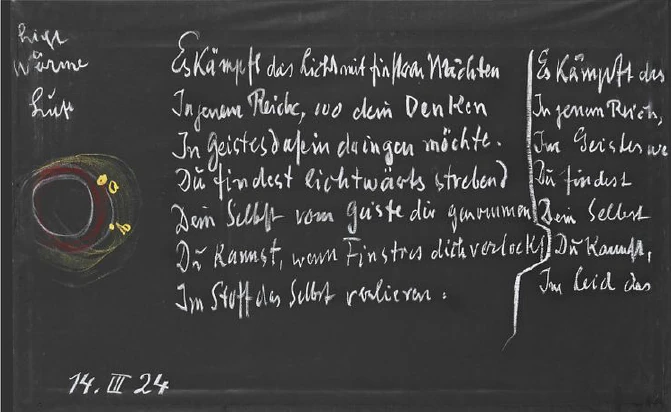 Licht
Wärme
Luft
Es Kämpft das Licht mit finstren Mächten
In jenem Reiche, wo dein Denken
In Geistesdasein dringen möchte.
Du findest lichtwärts strebend
Dein Selbst vom Geiste dir genommen
Du Kannst, wenn Finstres dich verlockt
Im Stoff das Selbst verlieren.
Es Kämpft das
In jenem Reich,
Im Geistes we
Du findest
Dein Selbst
Du Kannst,
Im Leid das
14. III 24